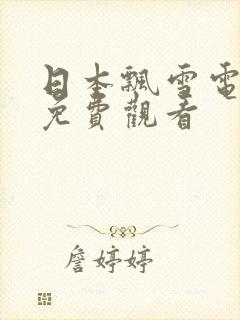 日本飄雪電
免費觀看
詹婷婷